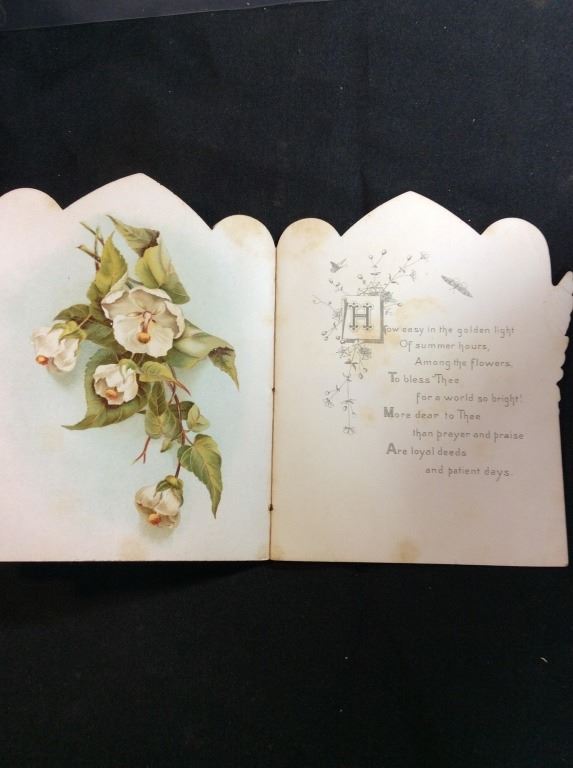 How easy in the golden light
Of summer hours,
Among the flowers,
To bless Thee
for a world so bright!
More dear to Thee
than prayer and praise
Are loyal deeds
and patient days.